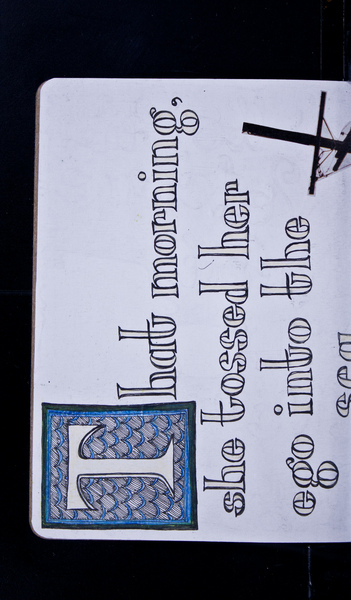 That morning,
she tossed her
ego into the
sea